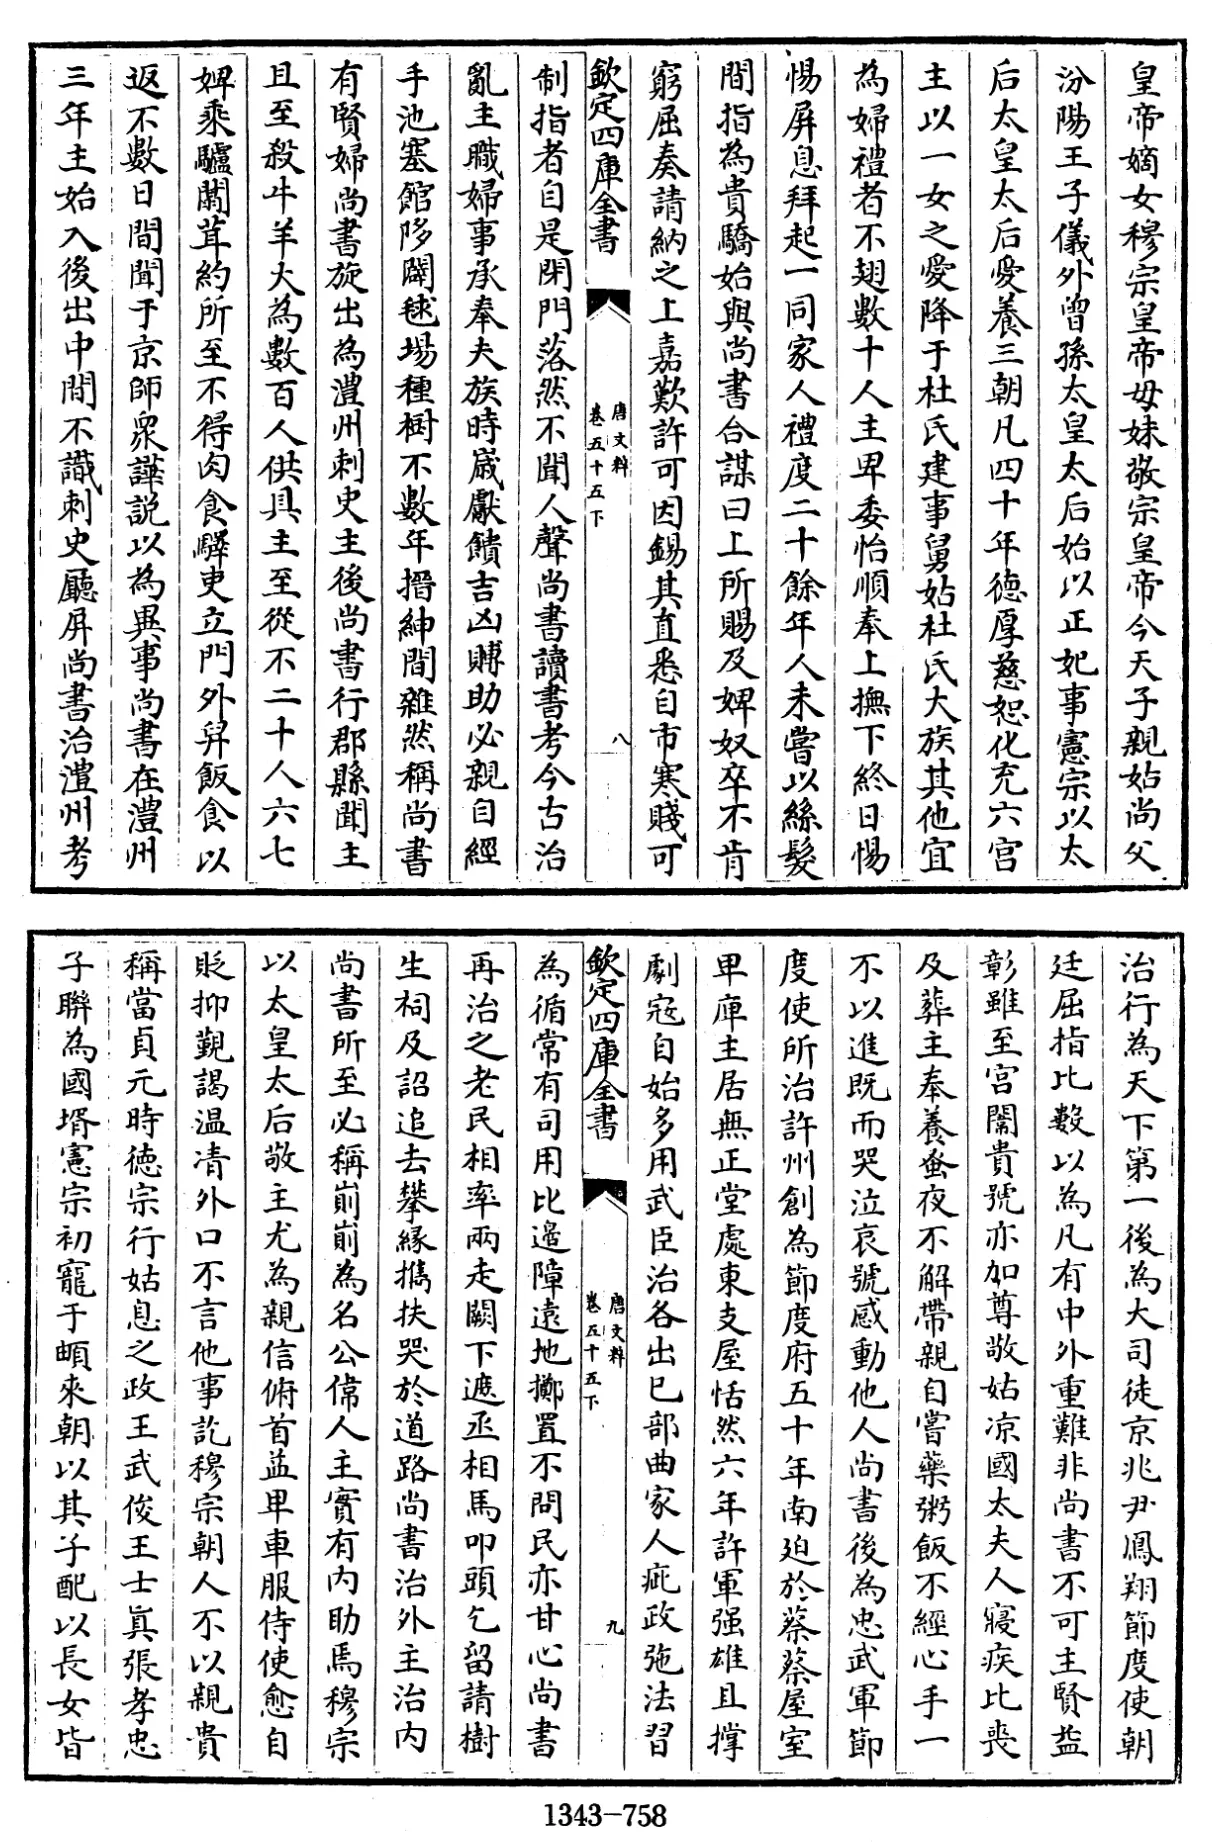 皇帝嫡女穆宗皇帝母妹敬宗皇帝今天子親姑尚父
汾陽王子儀外曾孫太皇太后始以正妃事憲宗以太
后太皇太后愛養三朝凡四十年德厚慈恕化充六宫
主以一女之愛降于杜氏建事舅姑杜氏大族其他宜
為婦禮者不翅數十人主卑委怡順奉上撫下終日惕
惕屏息拜起一同家人禮度二十餘年人未嘗以絲髮
間指為貴驕始與尚書合謀曰上所賜及婢奴卒不肯
窮屈奏請納之上嘉歎許可因錫其直悉自市寒賤可
欽定四庫全書
唐文粹
卷五十五下
八
制指者自是閉門落然不聞人聲尚書讀書考今古治
亂主職婦事承奉夫族時嵗獻饋吉凶賻助必親自經
手池塞館陊闢毬場種樹不數年搢紳間雜然稱尚書
有賢婦尚書旋出為澧州刺史主後尚書行郡縣聞主
且至殺牛羊犬為數百人供具主至從不二十人六七
婢乘驢闒茸約所至不得肉食驛吏立門外舁飯食以
返不數日間聞于京師衆譁説以為異事尚書在澧州
三年主始入後出中間不識刺史廳屏尚書治澧州考
治行為天下第一後為大司徒京兆尹鳳翔節度使朝
廷屈指比數以為凡有中外重難非尚書不可主賢益
彰雖至宫闈貴號亦加尊敬姑凉國太夫人寢疾比喪
及葬主奉養蚤夜不解帶親自嘗藥粥飯不經心手一
不以進既而哭泣哀號感動他人尚書後為忠武軍節
度使所治許州創為節度府五十年南迫於蔡蔡屋室
卑庫主居無正堂處東支屋恬然六年許軍强雄且撑
劇宼自始多用武臣治各出已部曲家人疵政弛法習
欽定四庫全書
唐文粹
卷五十五下
九
為循常有司用比邉障遠地擲置不問民亦甘心尚書
再治之老民相率兩走闕下遮丞相馬叩頭乞留請樹
生祠及詔追去攀緣擕扶哭於道路尚書治外主治内
尚書所至必稱前前為名公偉人主實有内助焉穆宗
以太皇太后敬主尤為親信俯首益卑車服侍使愈自
貶抑覲謁温凊外口不言他事訖穆宗朝人不以親貴
稱當貞元時徳宗行姑息之政王武俊王士真張孝忠
子聯為國壻憲宗初寵于頔來朝以其子配以長女皆
1343-758